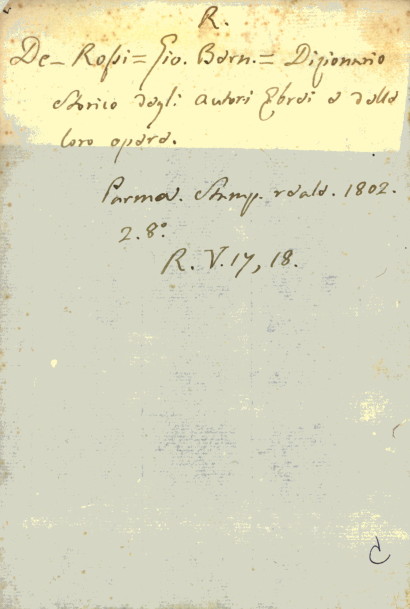 R.
De-Rossi = Gio. Bern. = Dizionario
storico degli autori Ebrei e delle
loro opere.
Parma. Stamp. reale. 1802.
2. 8º.
R. V. 17, 18.
C